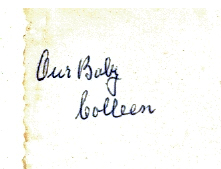 Our Baby
Colleen